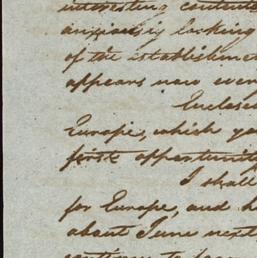 interesting contents
anxiously looking
of the establishmen
appears now ever
Enclose
Europe, which yo
first opportunity
I shall
for Europe, and h
about June next,
continue to